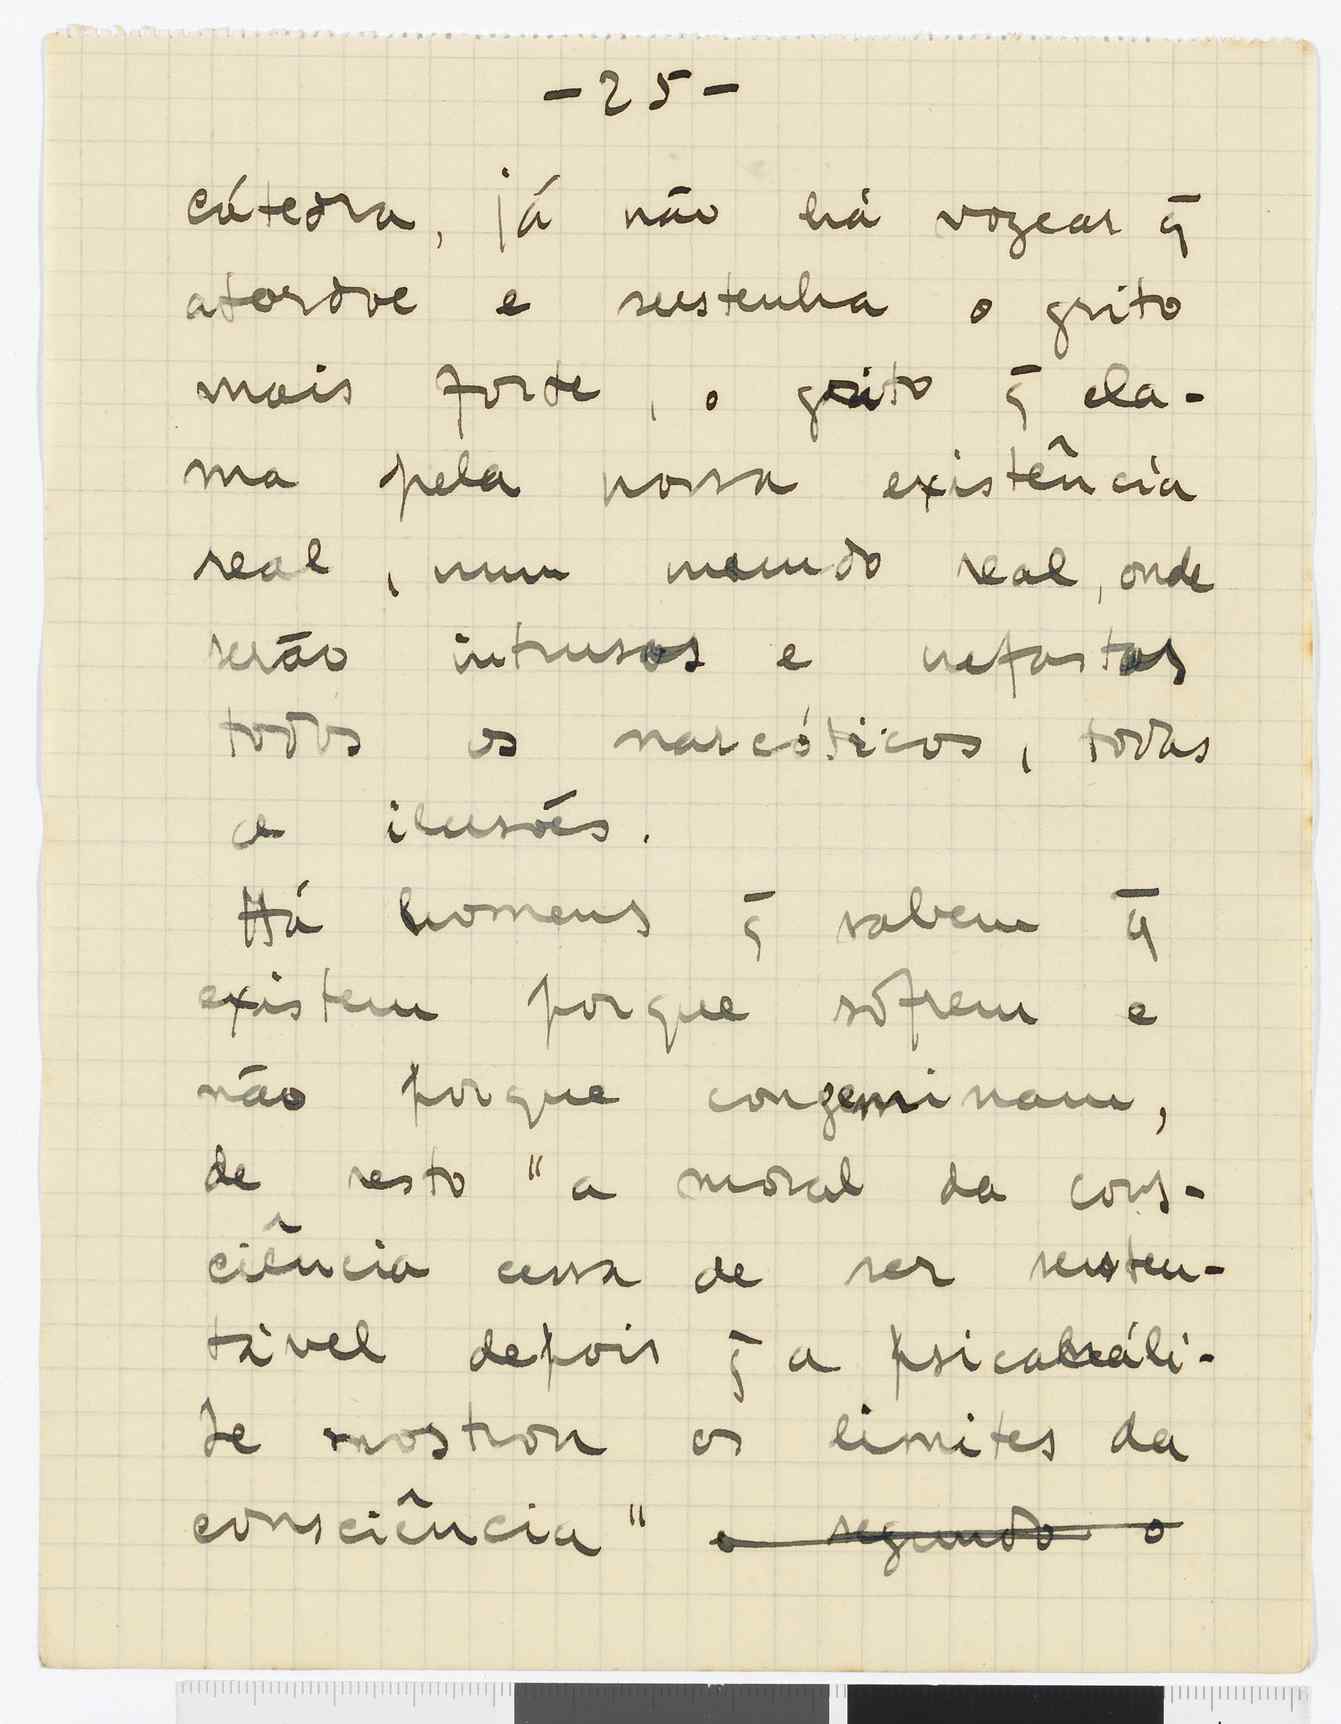 -25-
cátedra, já não há vozear q̄
atordoe e sustenha o grito
mais forte, o grito q̄ cla-
ma pela nossa existência
real, num mundo real, onde
serão intrusos e nefastos
todos os narcóticos, todas
as ilusões.
Há homens q̄ sabem q̄
existem porque sofrem e
não porque congeminam,
de resto "a moral da cons-
ciência cessa de ser susten-
tável depois q̄ a psicanáli-
se mostrou os limites da
consciência" e segundo o